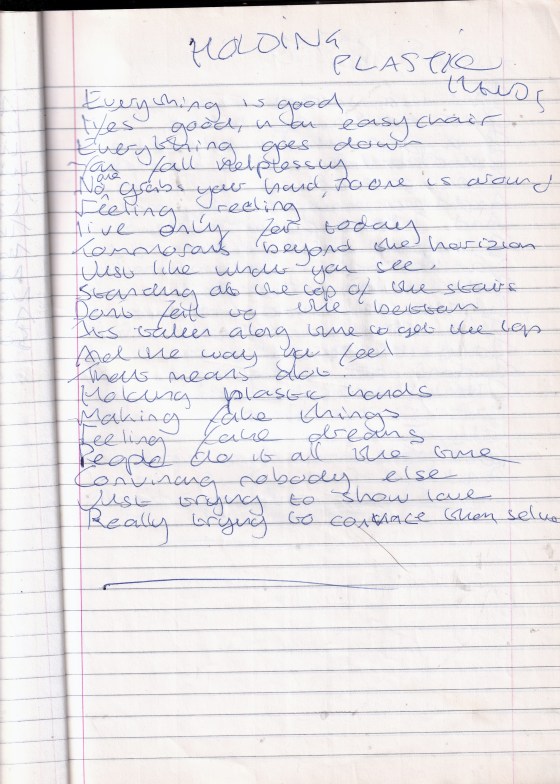 HOLDING
PLASTIC
HANDS
Everything is good
Eyes good, in an easy chair
Everything goes down
You fall helplessly
No one grabs your hand, no one is around
Feeling reeling
live only for today
Tommorows beyond the horizion
Just like what you see.
Standing at the top of the stairs
Dont fall to the bottom
Its taken along time to get the top
And the way you feel
That means alot
Making plastic hands
Making fake things
Feeling fake dreams
People do it all the time
Convining nobody else
Just trying to show love
Really trying to them selves